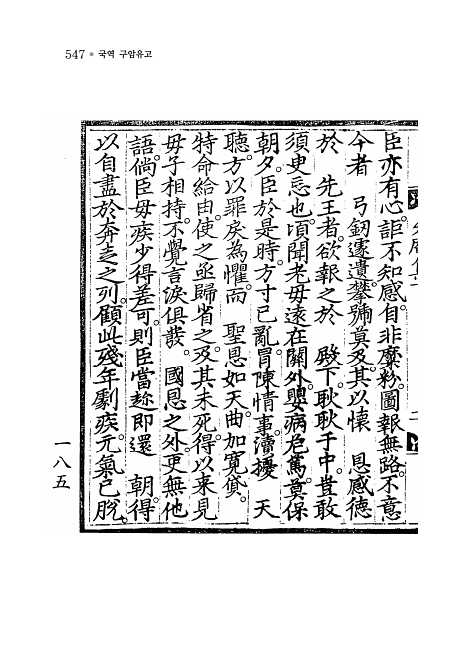 547 • 국역 구암유고
臣亦有心。詎不知感。自非糜粉。圖報無路。不意
今者 弓釰遽遺。攀號莫及。其以懷 恩感德
於 先王者。欲報之於 殿下。耿耿于中。豈敢
須臾忘也。頃聞老母遠在關外。嬰病危篤。莫保
朝夕。臣於是時。方寸已亂。冒陳情事。瀆擾 天
聽。方以罪戾爲懼。而 聖恩如天。曲加寬貸。
特命給由。使之亟歸省之。及其未死。得以來見
毋子相持。不覺言淚俱發。 國恩之外。更無他
語。倘臣毋疾少得差可。則臣當趂即還 朝。得
以自盡於奔走之列。顧此殘年劇疾。元氣已脫。
一八五